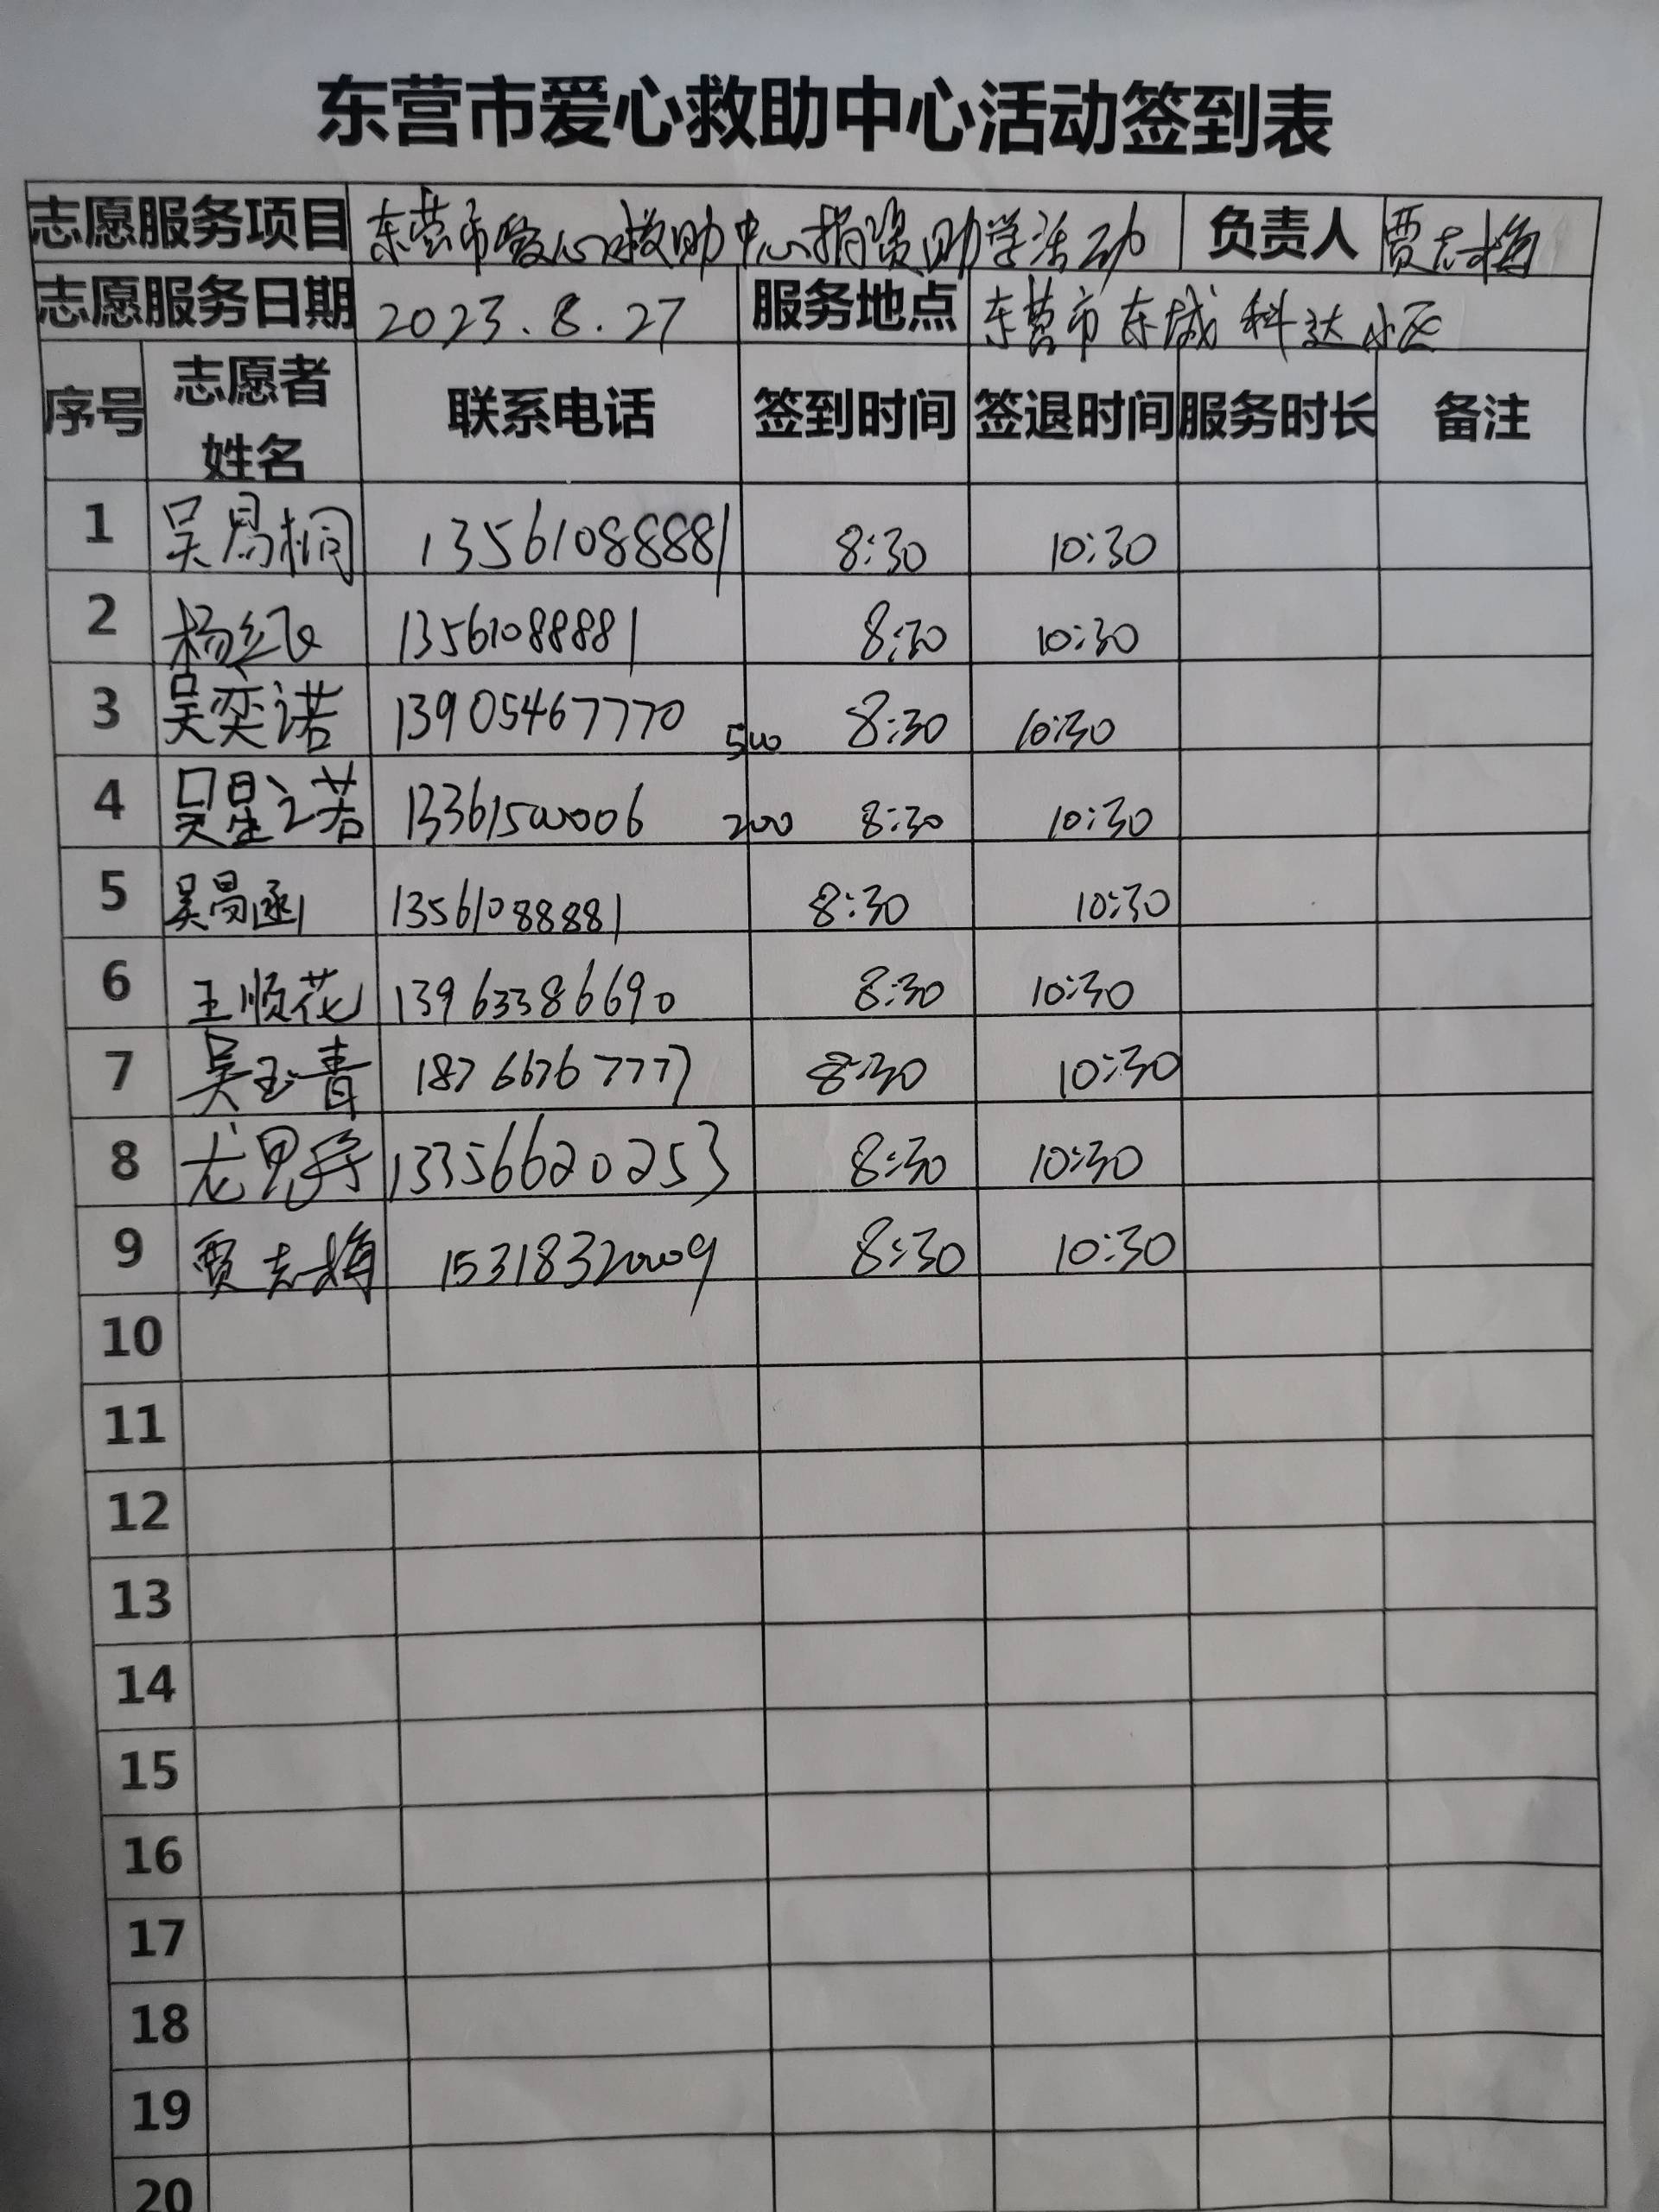 东营市爱心救助中心活动签到表
志愿服务项目 东营市爱心救助中心捐资助学活动 负责人 贾志梅
志愿服务日期 2023.8.27 服务地点 东营市东城科达小区
序号 志愿者姓名 联系电话 签到时间 签退时间 服务时长 备注
1 吴易桐 13561088881 8:30 10:30
2 杨红飞 13561088881 8:30 10:30
3 吴奕诺 13905467770 500 8:30 10:30
4 吴星诺 13361500006 200 8:30 10:30
5 吴昺函 13561088881 8:30 10:30
6 王顺花 13963386690 8:30 10:30
7 吴玉青 18766767777 8:30 10:30
8 龙 13356620253 8:30 10:30
9 贾志梅 15318320009 8:30 10:30
10
11
12
13
14
15
16
17
18
19
20